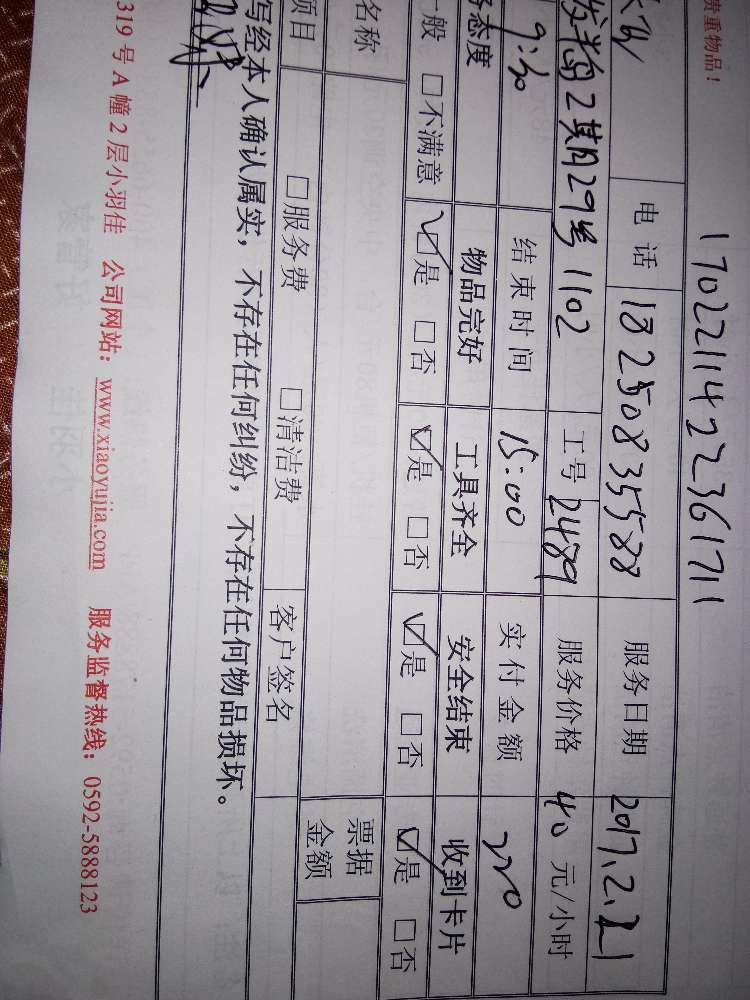 贵重物品！
1702211422361711
电话 18250835588 服务日期 2017.2.21
2期29号1102 工号 2489 服务价格 40 元/小时
9:30 结束时间 15:00 实付金额 220
态度 物品完好 工具齐全 安全结束 收到卡片
般 □不满意 ☑是 □否 ☑是 □否 ☑是 □否 ☑是 □否
名称 票据金额
项目 □服务费 □清洁费 客户签名
写经本人确认属实，不存在任何纠纷，不存在任何物品损坏。
319 号 A 幢 2 层小羽佳 公司网站：www.xiaoyujia.com 服务监督热线：0592-5888123